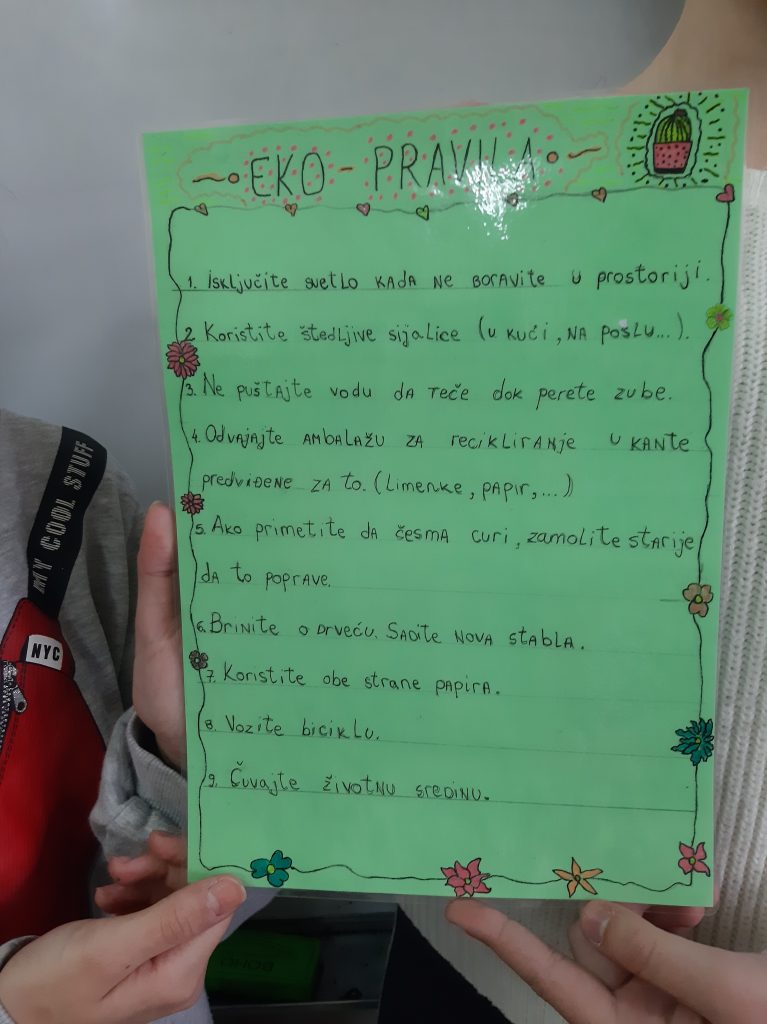 EKO - PRAVILA
1. Isključite svetlo kada ne boravite u prostoriji.
2. Koristite štedljive sijalice (u kući, na poslu...).
3. Ne puštajte vodu da teče dok perete zube.
4. Odvajajte ambalažu za recikliranje u kante
predviđene za to. (limenke, papir,...)
5. Ako primetite da česma curi, zamolite starije
da to poprave.
6. Brinite o drveću. Sadite nova stabla.
7. Koristite obe strane papira.
8. Vozite biciklu.
9. Čuvajte životnu sredinu.
MY COOL STUFF
NYC